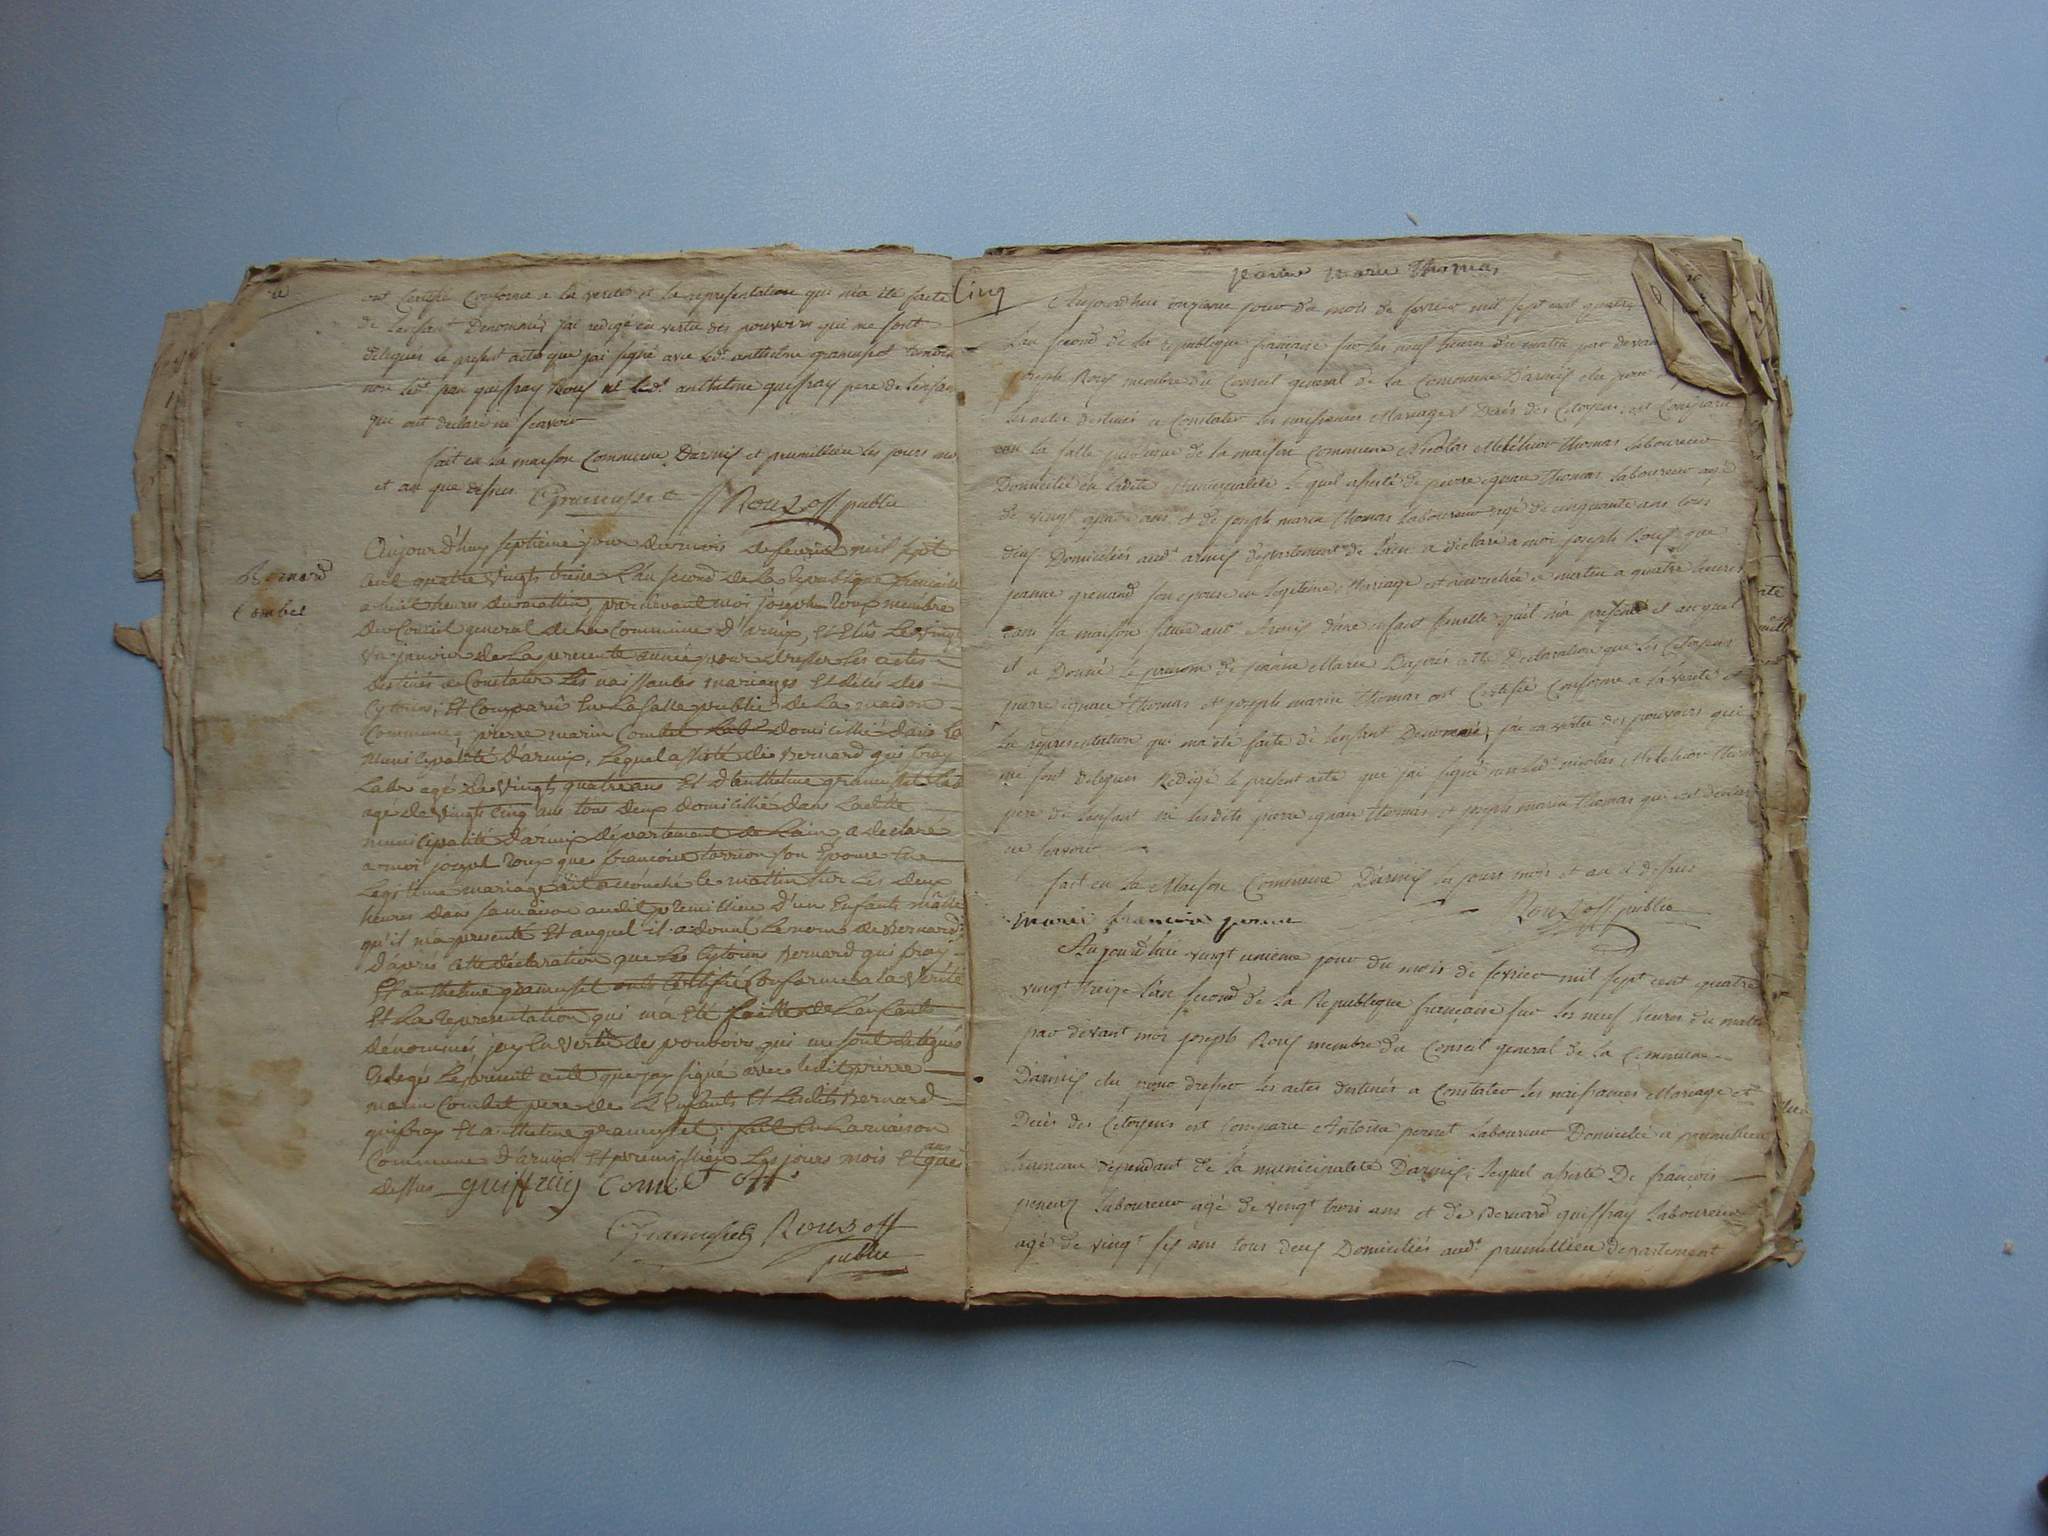 ont Certifié Conforme a la verité et la représentation qui m'a été faite
de l'enfant Denommés j'ai redigé en vertu des pouvoirs qui me sont
délégués le present acte que j'ai signé avec led.t anthelme gramusset
non led.t guiffray ni led.t anthelme guiffray pere de l'enfant
qui ont declaré ne scavoir
fait en la maison Commune D'armis et premillieu les jours mois
et an que dessus Gramusset Roux off public
Bernard
Combet
Aujourd'huy septieme jour du mois de fevrier mil sept
cent quatre vingts treise L'an second de La republique francaise
a huit heures du mattin, par devant moi joseph Roux membre
du Conseil general de la Commune D'armix, Et Elûs Le vingt
janvier de La presente année pour dresser Les actes
destinés a Constater Les naissantes mariages Et désés des
Cytoiens, Et Comparû En La salle public de La maison
Commune, pierre marin Combet Lab.r domicillié dans La
municipalité d'armix, Lequel assisté de Bernard guifray
Lab.r agé de vingt quatre ans Et d'anthelme gramusset Lab
agé de vingt Cinq ans tous deux domicillié dans Laditte
municipalité d'armix departement de Lain, a declaré
a moi joseph Roux que francoise son Epouse En
Legitime mariage ait accouché le mattin sur Les deux
heures dans sa maison audit premillieu d'un Enfants mâlle
qu'il m'a presenté Et auquel il a donné Le nom de Bernard
d'apres Cette déclaration que Les Cytoiens Bernard guifray
Et anthelme gramusset onts Certifié Conforme a la verité
Et La representation qui m'a été faitte de L'énfants
dénommés jay En vertû de pouvoirs qui me sont delégués
redegé Le present acte que jay signé avec ledit pierre
marin Combet pere de L'Enfants Et Lesdits Bernard
guifray Et anthelme gramusset, fait En La maison
Commune D'armix Et premillieu Les jours mois Et ans que
dessus guiffray Combet off
Gramusset Roux off
public
Cinq
jeanne marie Thomas
Aujourdhui onzieme jour du mois de fevrier mil sept cent quatre
Lan second de la republique française sur les neuf heures du matin par devant
joseph Roux membre du Conseil general de la Commune D'armix elu pour
les actes destinés a Constater les naissances Mariages et Décès des Citoyens est Comparu
en la salle publique de la maison Commune Nicolas Melchior Thomas laboureur
Domicilié en ladite Municipalité lequel assisté de pierre ignace Thomas laboureur agé
de vingt quatre ans et de joseph marin Thomas laboureur agé de cinquante ans tous
deux Domiciliés aud.t armix departement de l'ain a déclaré a moi joseph Roux que
jeanne grenand son epouse en legitime Mariage est accouchée ce matin a quatre heures
dans sa maison située aud.t Armix d'une enfant femelle quil m'a presenté et auquel
il a Donné le prenom de jeanne Marie D'après cette Declaration que les Citoyens
pierre ignace Thomas et joseph marin Thomas ont Certifié Conforme a la verité et
la representation qui m'a été faite de l'enfant Denommé, j'ai en vertu des pouvoirs qui
me sont delegués Redigé le present acte que j'ai signé non led.t nicolas Melchior Thomas
pere de l'enfant ni lesdits pierre ignace Thomas et joseph marin Thomas qui ont declaré
ne scavoir
fait en la Maison Commune D'armix les jours mois et an ci dessus
Roux off public
marie francoise pernet
Aujourd'hui vingt unieme jour du mois de fevrier mil sept cent quatre
vingt treize L'an second de la Republique française sur les neuf heures du matin
par devant moi joseph Roux membre du Conseil general de la Commune
Darmix elu pour dresser les actes destinés a Constater les naissances Mariage et
Decès des Citoyens est Comparu Antoine pernet Laboureur Domicilié a premillieu
hameau dépendant de la municipalité D'armix, lequel assisté De françois
laboureur agé de vingt trois ans et de Bernard guiffray laboureur
agé de vingt six ans tous deux Domiciliés aud.t premillieu departement